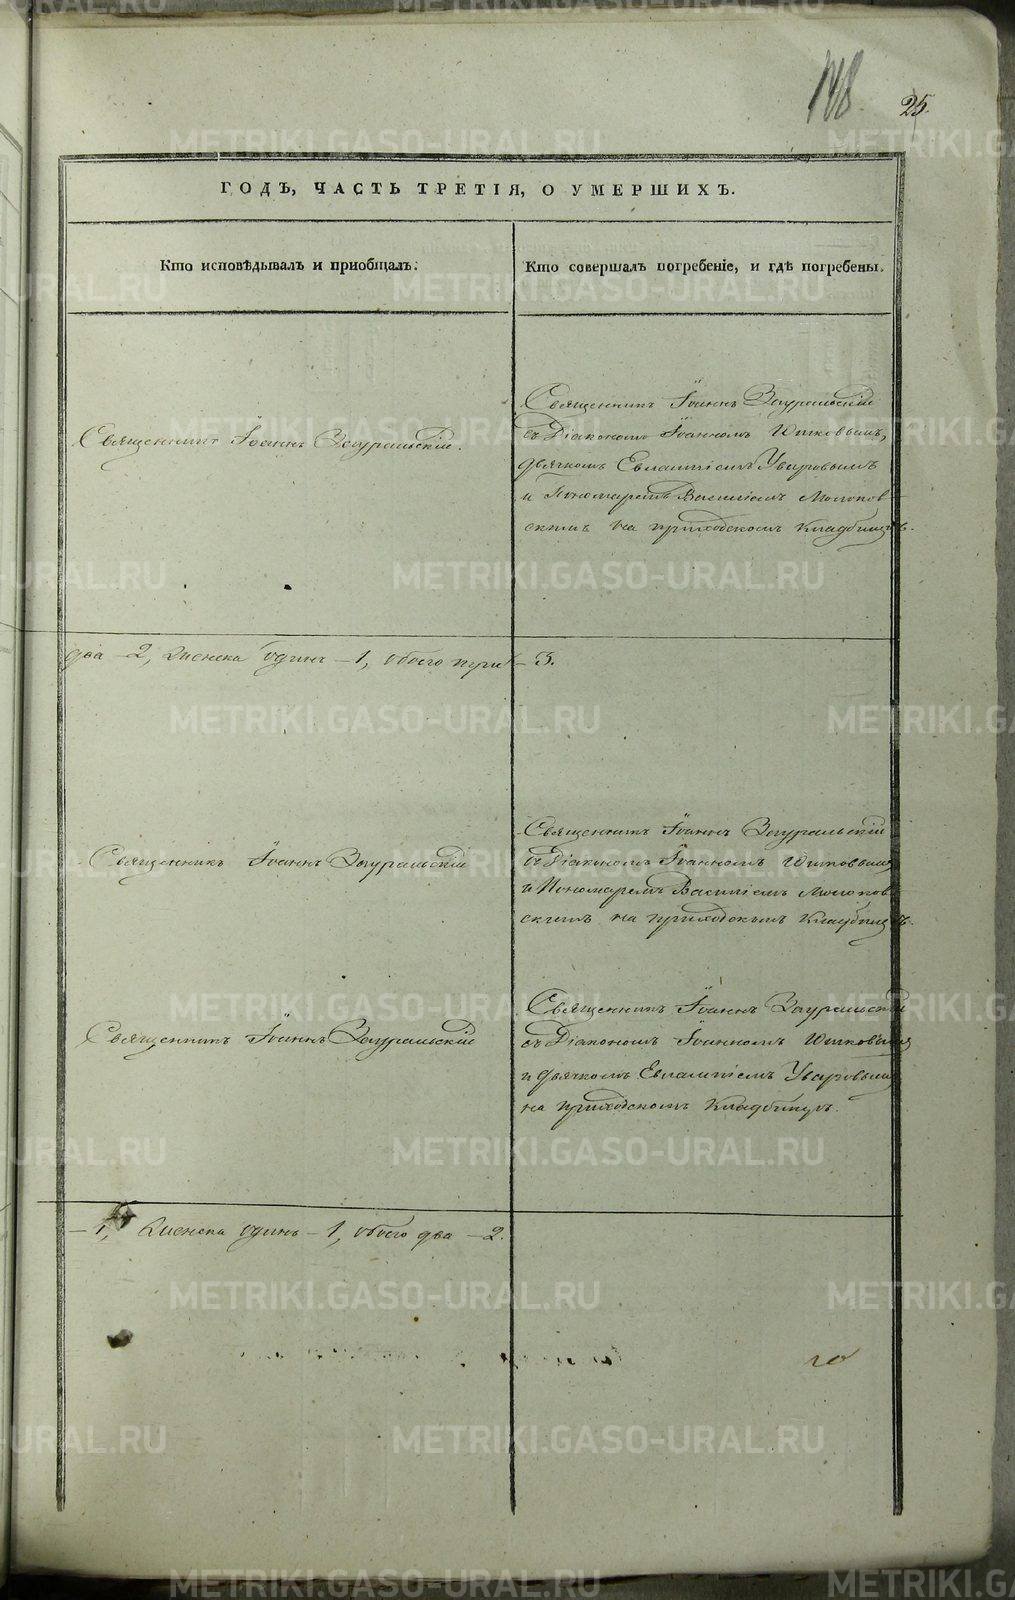 148
25.
ГОДЪ, ЧАСТЬ ТРЕТІЯ, О УМЕРШИХЪ.
Кто исповѣдывалъ и приобщалъ.
Кто совершалъ погребеніе, и гдѣ погребены.
Священникъ Іоаннъ Зауральскій.
Священникъ Іоаннъ Зауральскій
съ Діакономъ Іоанномъ
дьячкомъ Евлампіемъ Уваровымъ
и Пономаремъ Василіемъ Молоков-
скимъ на приходскомъ кладбищѣ.
два – 2, женска одинъ – 1, обоего три – 3.
Священникъ Іоаннъ Зауральскій
Священникъ Іоаннъ Зауральскій
съ Діакономъ Іоанномъ
и Пономаремъ Василіемъ Молоков-
скимъ на приходскомъ кладбищѣ.
Священникъ Іоаннъ Зауральскій
Священникъ Іоаннъ Зауральскій
съ Діакономъ Іоанномъ
и дьячкомъ Евлампіемъ Уваровымъ
на приходскомъ кладбищѣ.
– 1, женска одинъ – 1, обоего два – 2.
го
METRIKI.GASO-URAL.RU